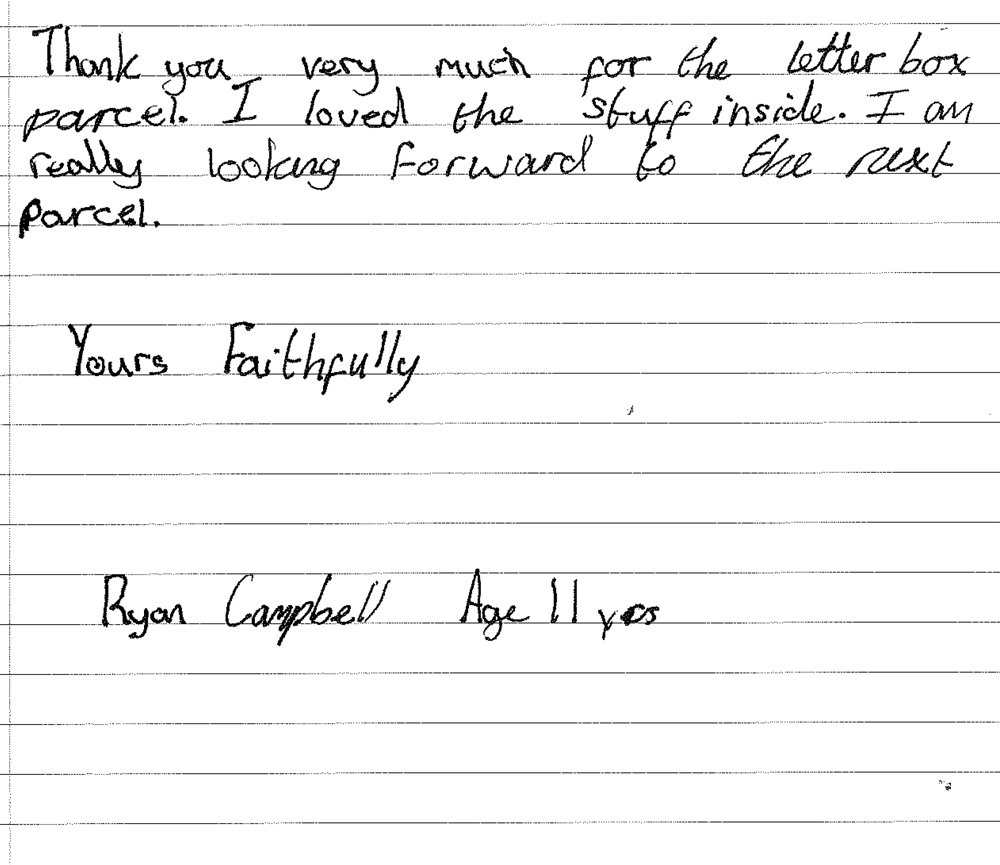 Thank you very much for the letter box
parcel. I loved the stuff inside. I am
really looking forward to the next
parcel.
Yours Faithfully
Ryan Campbell Age 11 yrs